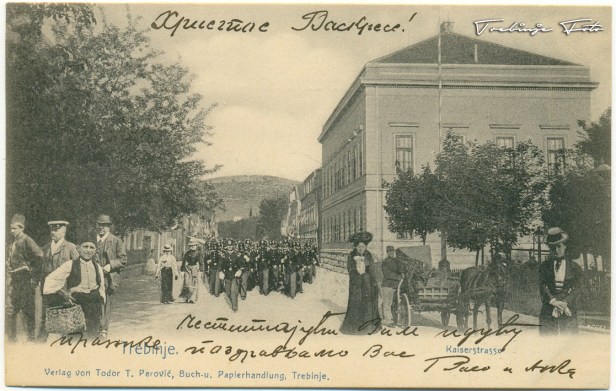 Trebinje Foto
Христос Васкресе!
Честитајући Вам
празнике поздрављамо Вас
и Анка
Trebinje.
Kaiserstrasse
Verlag von Todor T. Perović, Buch-u. Papierhandlung, Trebinje.